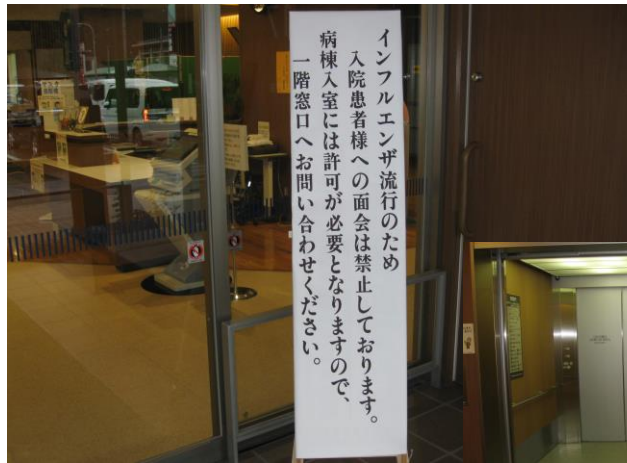 インフルエンザ流行のため
入院患者様への面会は禁止しております。
病棟入室には許可が必要となりますので、
一階窓口へお問い合わせください。